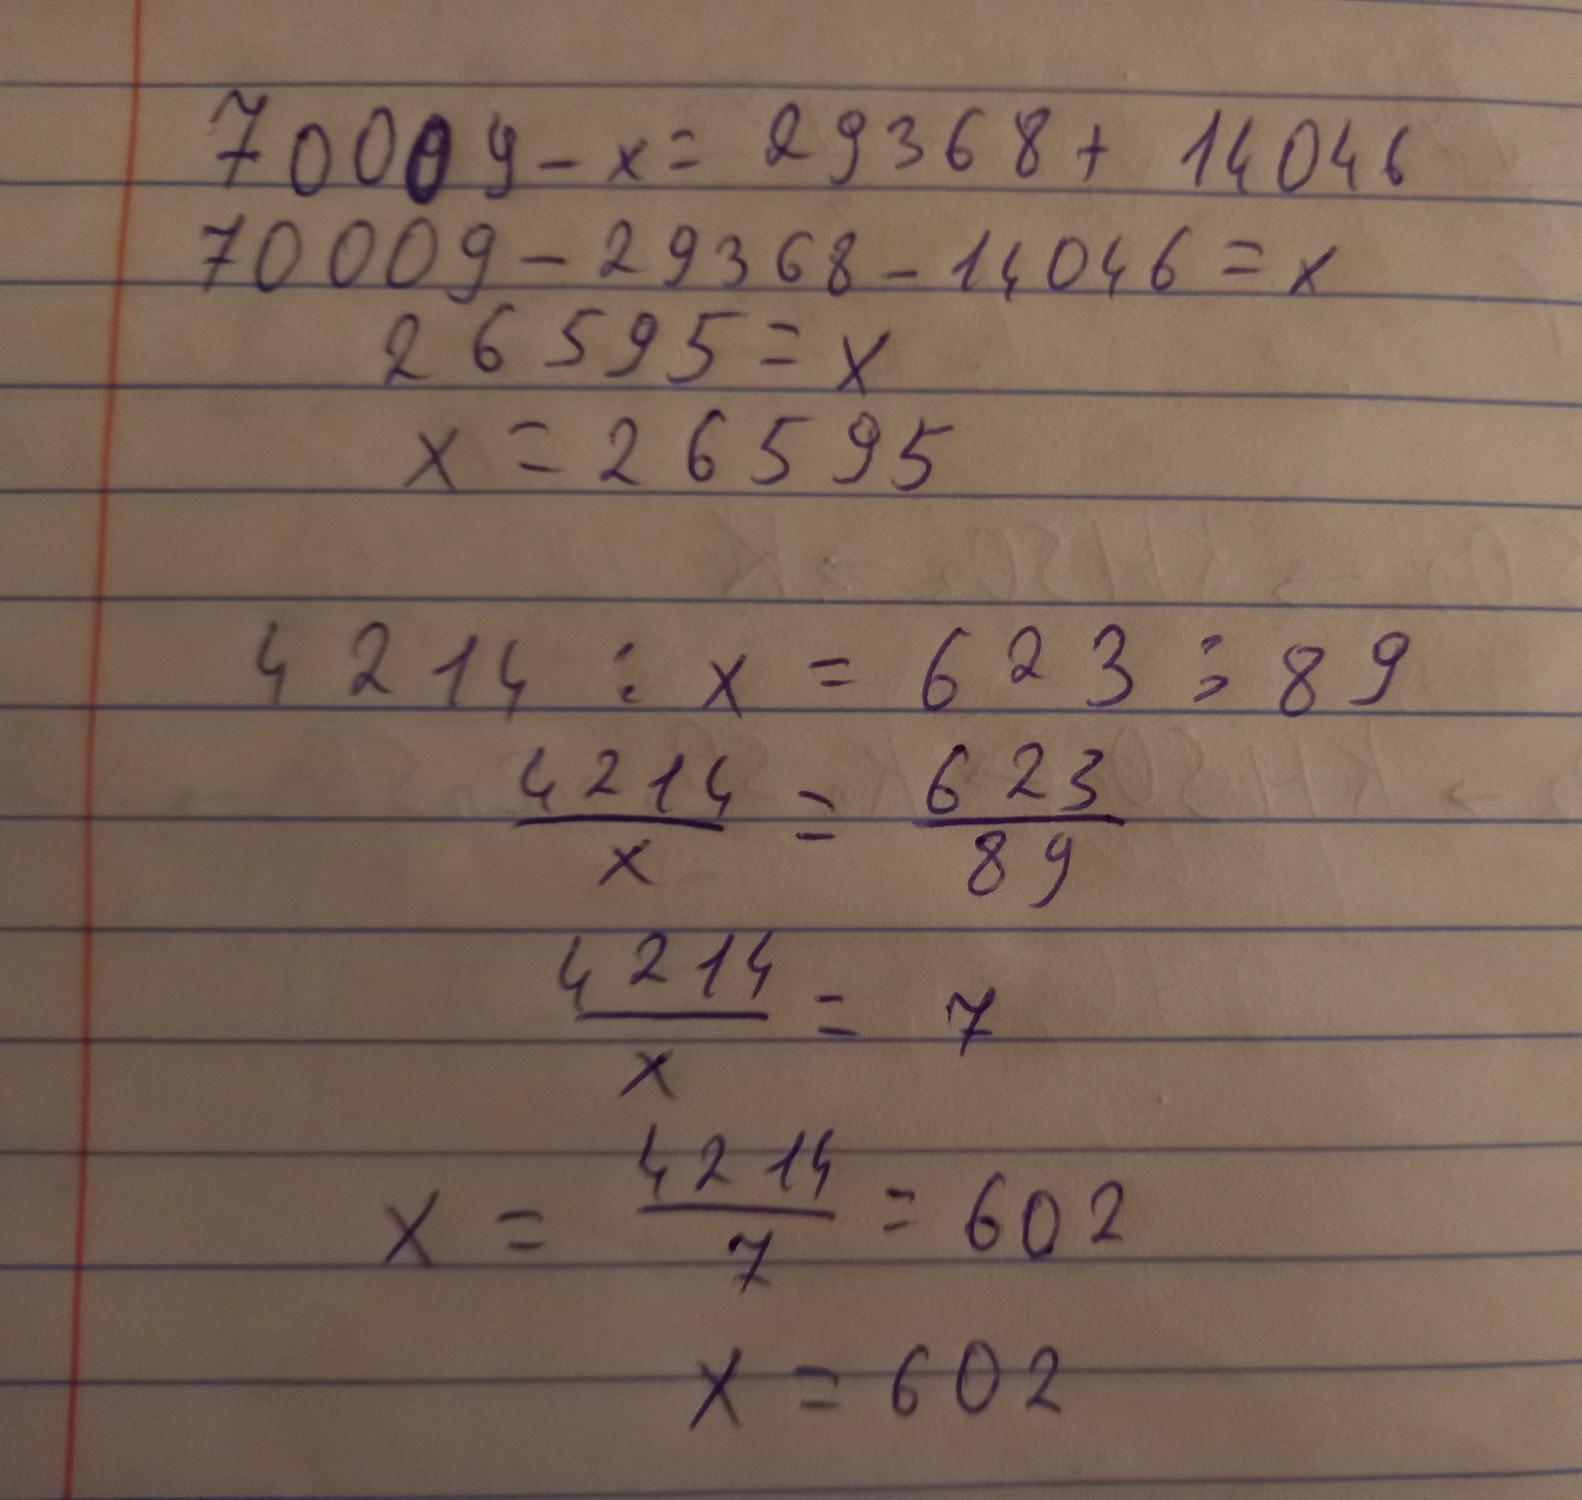 70009 - x = 29368 + 14046
70009 - 29368 - 14046 = x
26595 = x
x = 26595
4214 : x = 623 : 89
4214/x = 623/89
4214/x = 7
x = 4214/7 = 602
x = 602